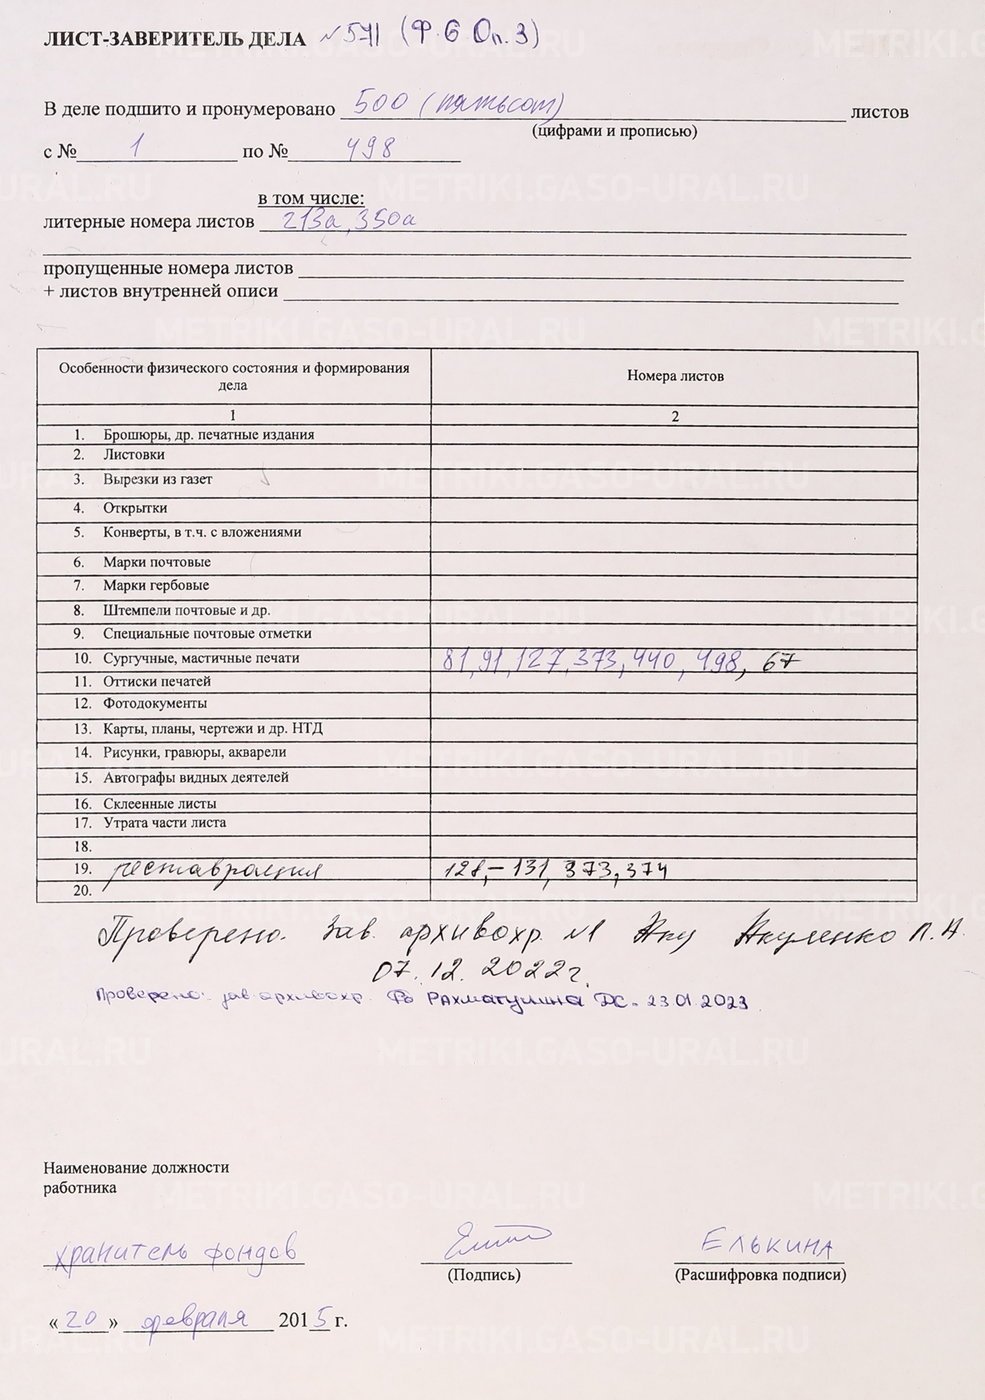 ЛИСТ-ЗАВЕРИТЕЛЬ ДЕЛА №571 (Ф.6 Оп.3)
В деле подшито и пронумеровано 500 (пятьсот) листов
(цифрами и прописью)
с № 1 по № 498
в том числе:
литерные номера листов 213а, 350а
пропущенные номера листов
+ листов внутренней описи
Особенности физического состояния и формирования дела Номера листов
1 2
1. Брошюры, др. печатные издания
2. Листовки
3. Вырезки из газет
4. Открытки
5. Конверты, в т.ч. с вложениями
6. Марки почтовые
7. Марки гербовые
8. Штемпели почтовые и др.
9. Специальные почтовые отметки
10. Сургучные, мастичные печати 81, 91, 127, 373, 440, 498, 67
11. Оттиски печатей
12. Фотодокументы
13. Карты, планы, чертежи и др. НТД
14. Рисунки, гравюры, акварели
15. Автографы видных деятелей
16. Склеенные листы
17. Утрата части листа
18.
19. реставрация 128,-131, 373, 374
20.
Проверено. Зав. архивохр. №1 Яку Якуленко Л.А.
07.12.2022г.
Проверено: зав. архивохр. Рахматулина ДС. 23.01.2023
Наименование должности
работника
хранитель фондов ЕЛЬКИНА
(Подпись) (Расшифровка подписи)
«20» февраля 2015 г.
METRIKI.GASO-URAL.RU